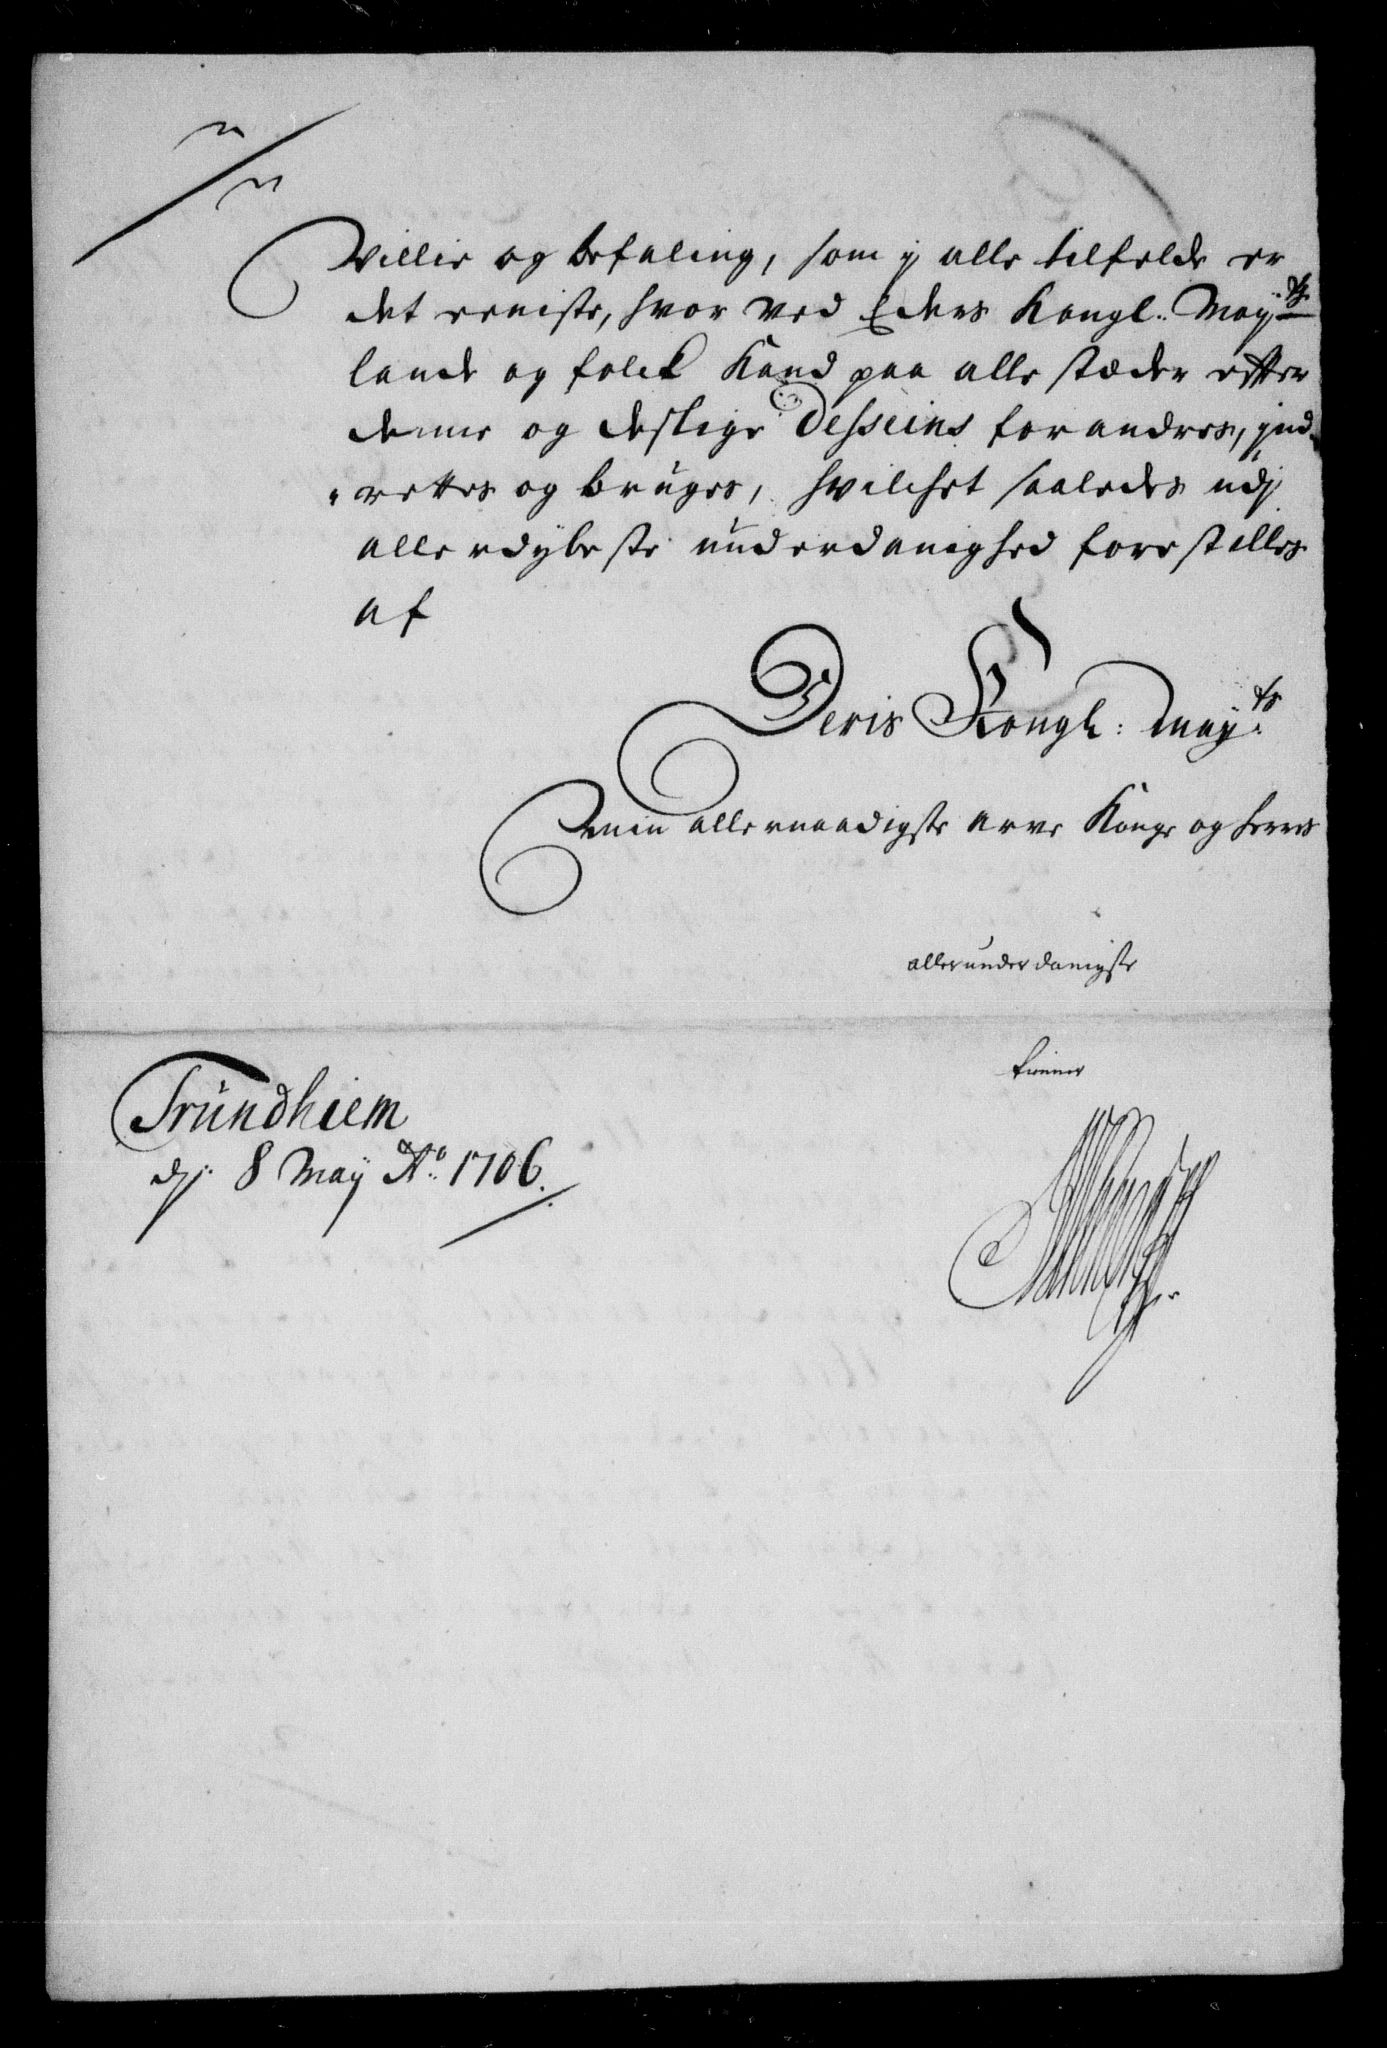 Villie og befaling, som j alle tilfelde er
det eeniste, hvor ved Eders Kongl. May.ts
lande og folck Kand paa alle stæder etter
denne og deslige Desseins forandres, jnd-
rettes og bruges, hvilchet saaledes udj
allerdybeste underdanighed forestilles
af
Deris Kongl: May.ts
min allernaadigste arve Konge og herres
allerunderdanigste
tienner
Trundhiem
dj. 8 May Ao. 1706.